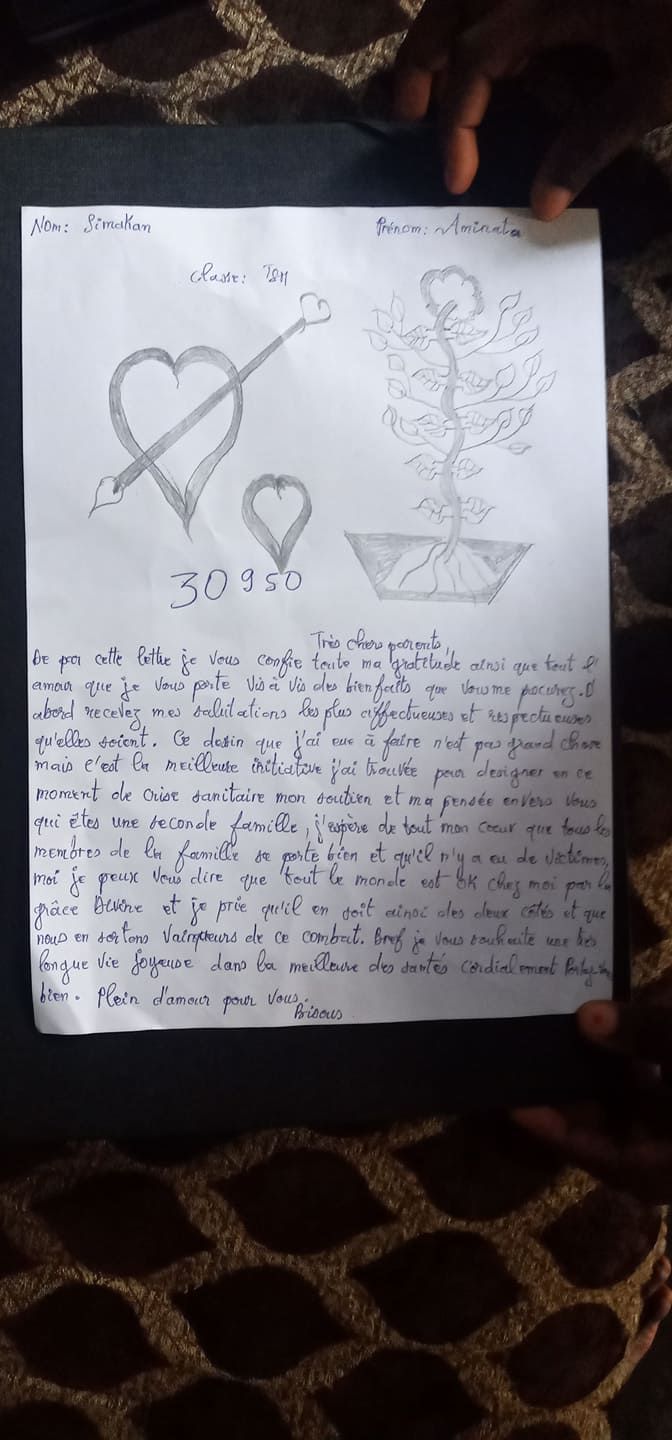 Nom: Simakan
Prénom: Aminata
Classe: TSM
30950
Très chers parents,
De par cette lettre je vous confie toute ma gratitude ainsi que tout l'
amour que je vous porte vis à vis des bienfaits que vous me procurez. D'
abord recevez mes salutations les plus affectueuses et respectueuses
qu'elles soient. Ce dessin que j'ai eue à faire n'est pas grand chose
mais c'est la meilleure initiative j'ai trouvée pour designer en ce
moment de crise sanitaire mon soutien et ma pensée envers vous
qui êtes une seconde famille, j'espère de tout mon coeur que tous les
membres de la famille se porte bien et qu'il n'y a eu de victimes,
moi je peux vous dire que tout le monde est OK chez moi par la
grâce Divine et je prie qu'il en soit ainsi des deux côtés et que
nous en sortons vainqueurs de ce combat. Bref je vous souhaite une très
longue vie joyeuse dans la meilleure des santés Cordialement
bien. Plein d'amour pour vous.
Bisous